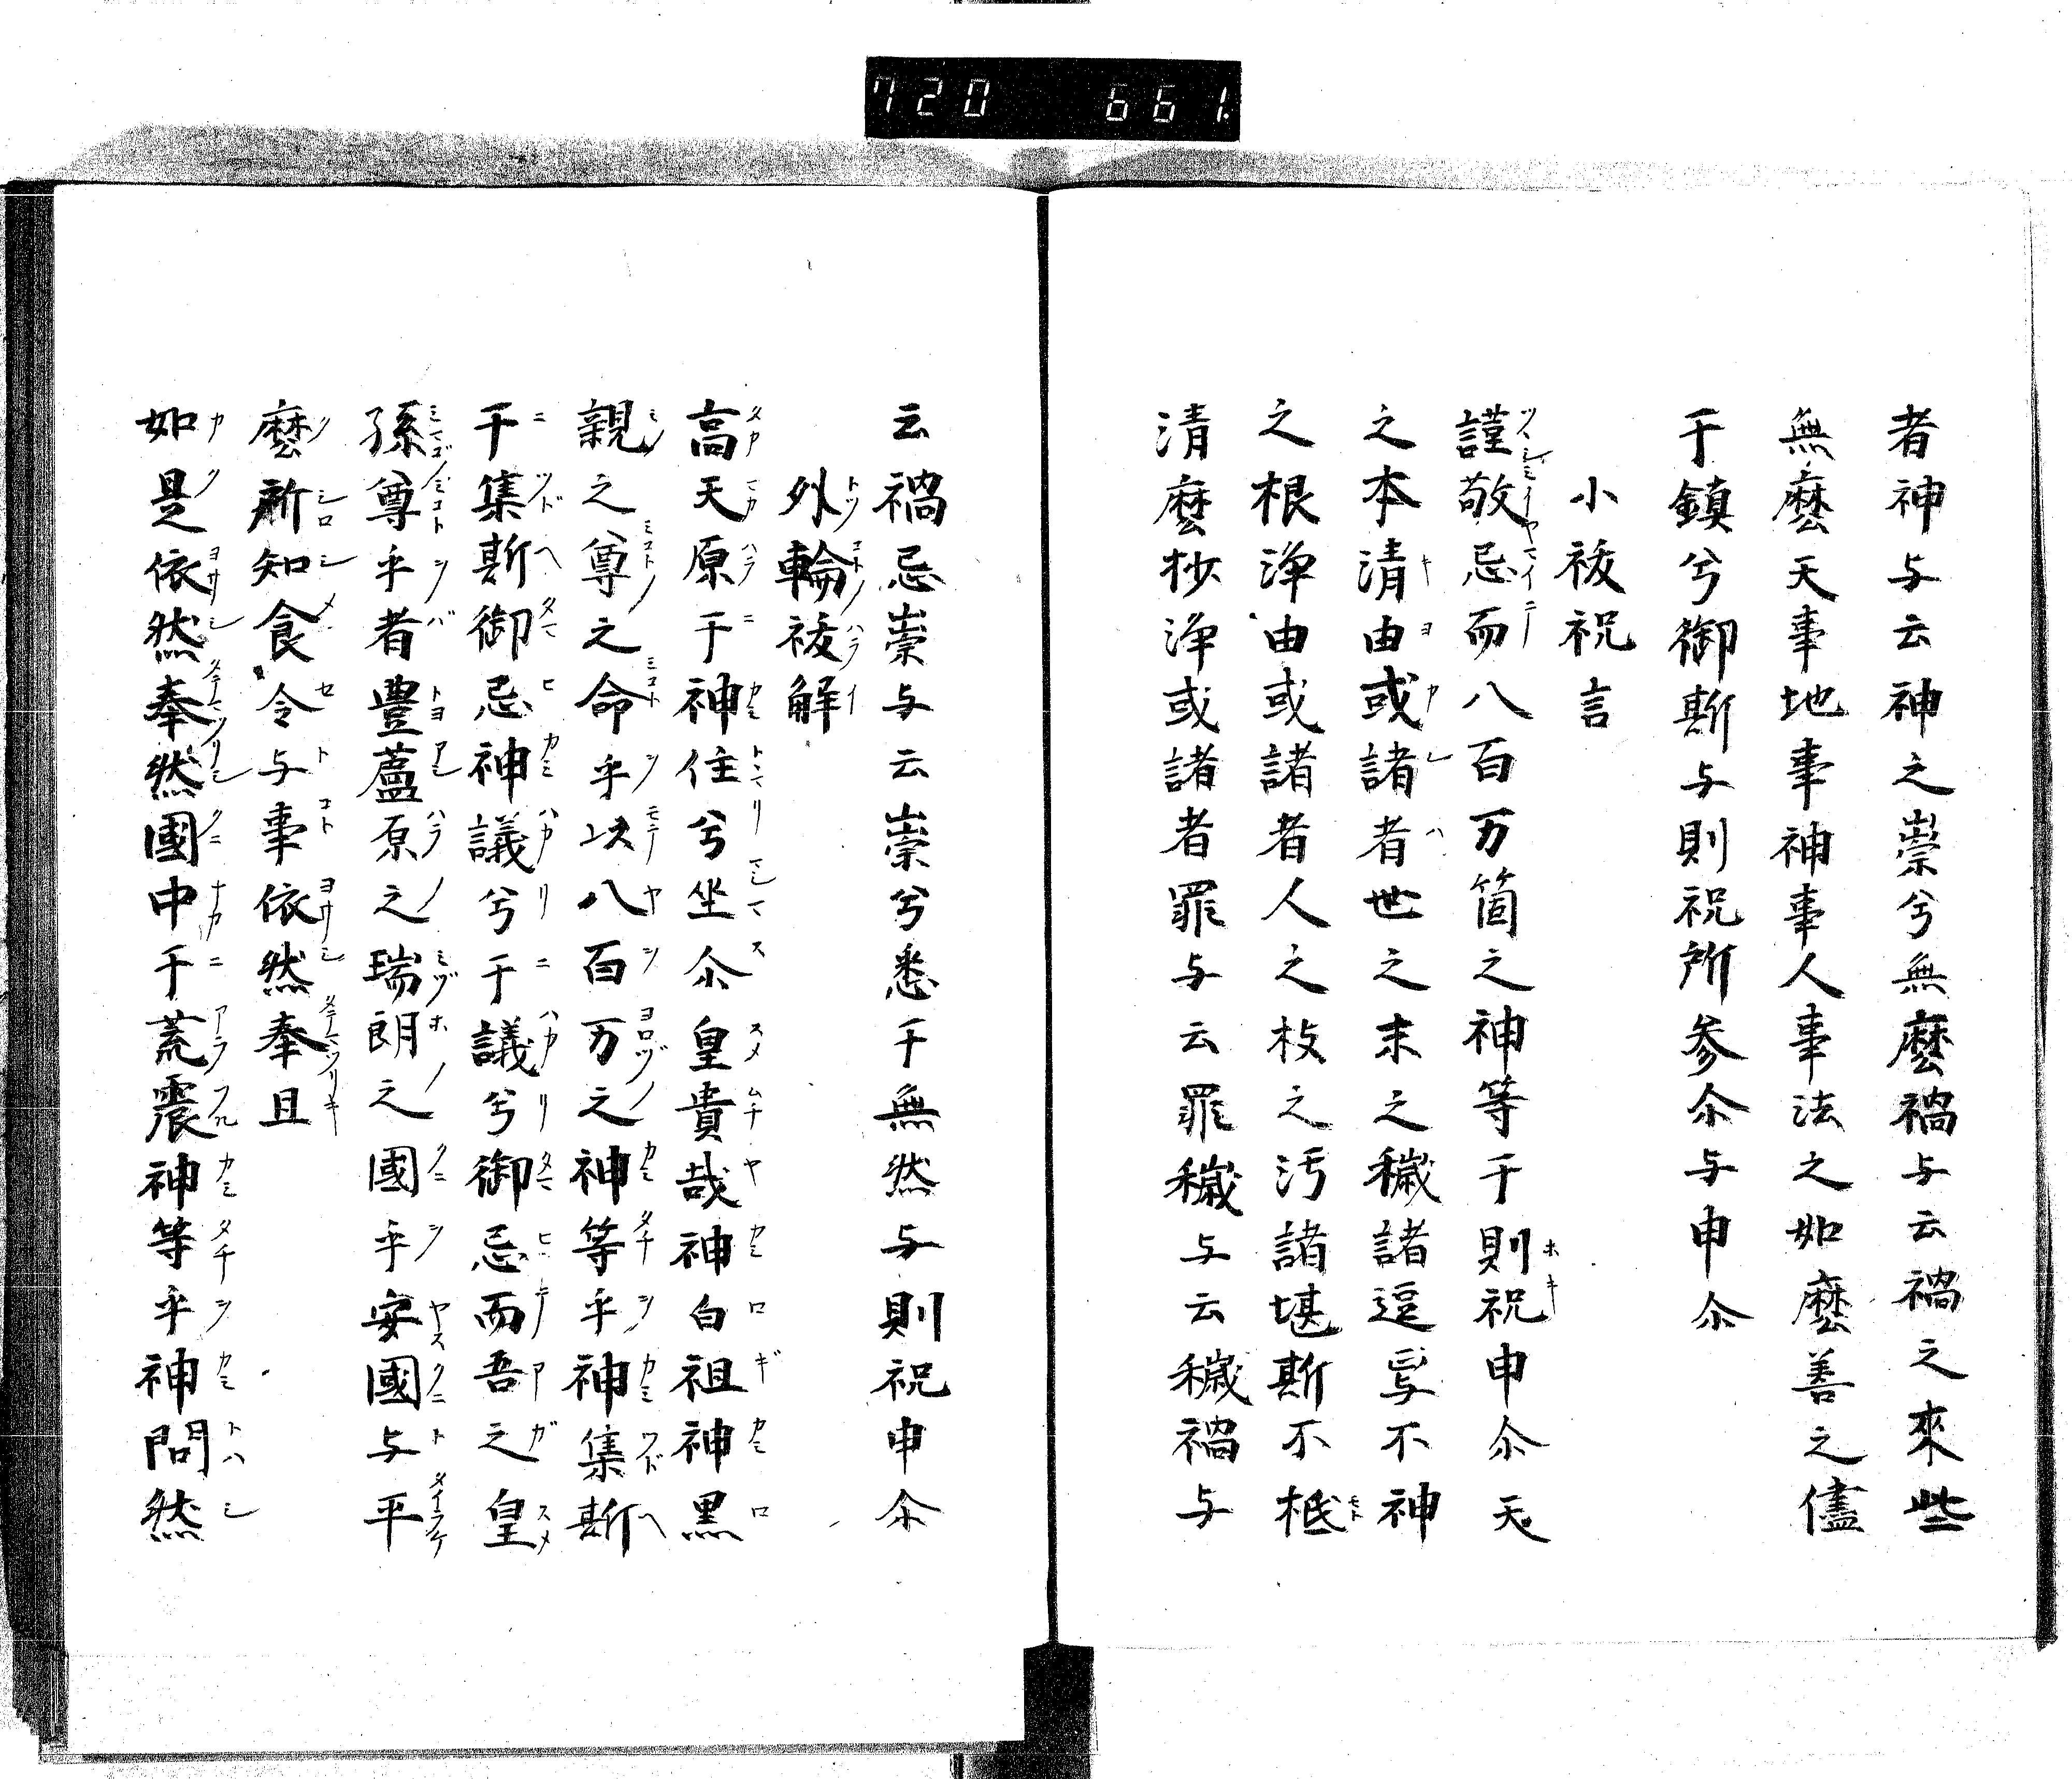 720 661.
者神与云神之崇兮無麼禍与云禍之來些
無麼天事地事神事人事法之如麼善之儘
于鎮兮御斯与則祝所参尒与申尒
小祓祝言
謹敬忌而八百万箇之神等于則祝申尒天
之本清由或諸者世之末之穢諸逗写不神
之根浄由或諸者人之枝之汚諸堪斯不柢
清麼杪浄或諸者罪与云罪穢与云穢禍与
云禍忌崇与云崇兮悉于無然与則祝申尒
外輪祓解
高天原于神住兮坐尒皇貴哉神白祖神黒
親之尊之命乎以八百万之神等乎神集斯
于集斯御忌神議兮于議兮御忌而吾之皇
孫尊乎者豊蘆原之瑞朗之國乎安國与平
麼所知食令与事依然奉且
如是依然奉然國中于荒震神等乎神問然